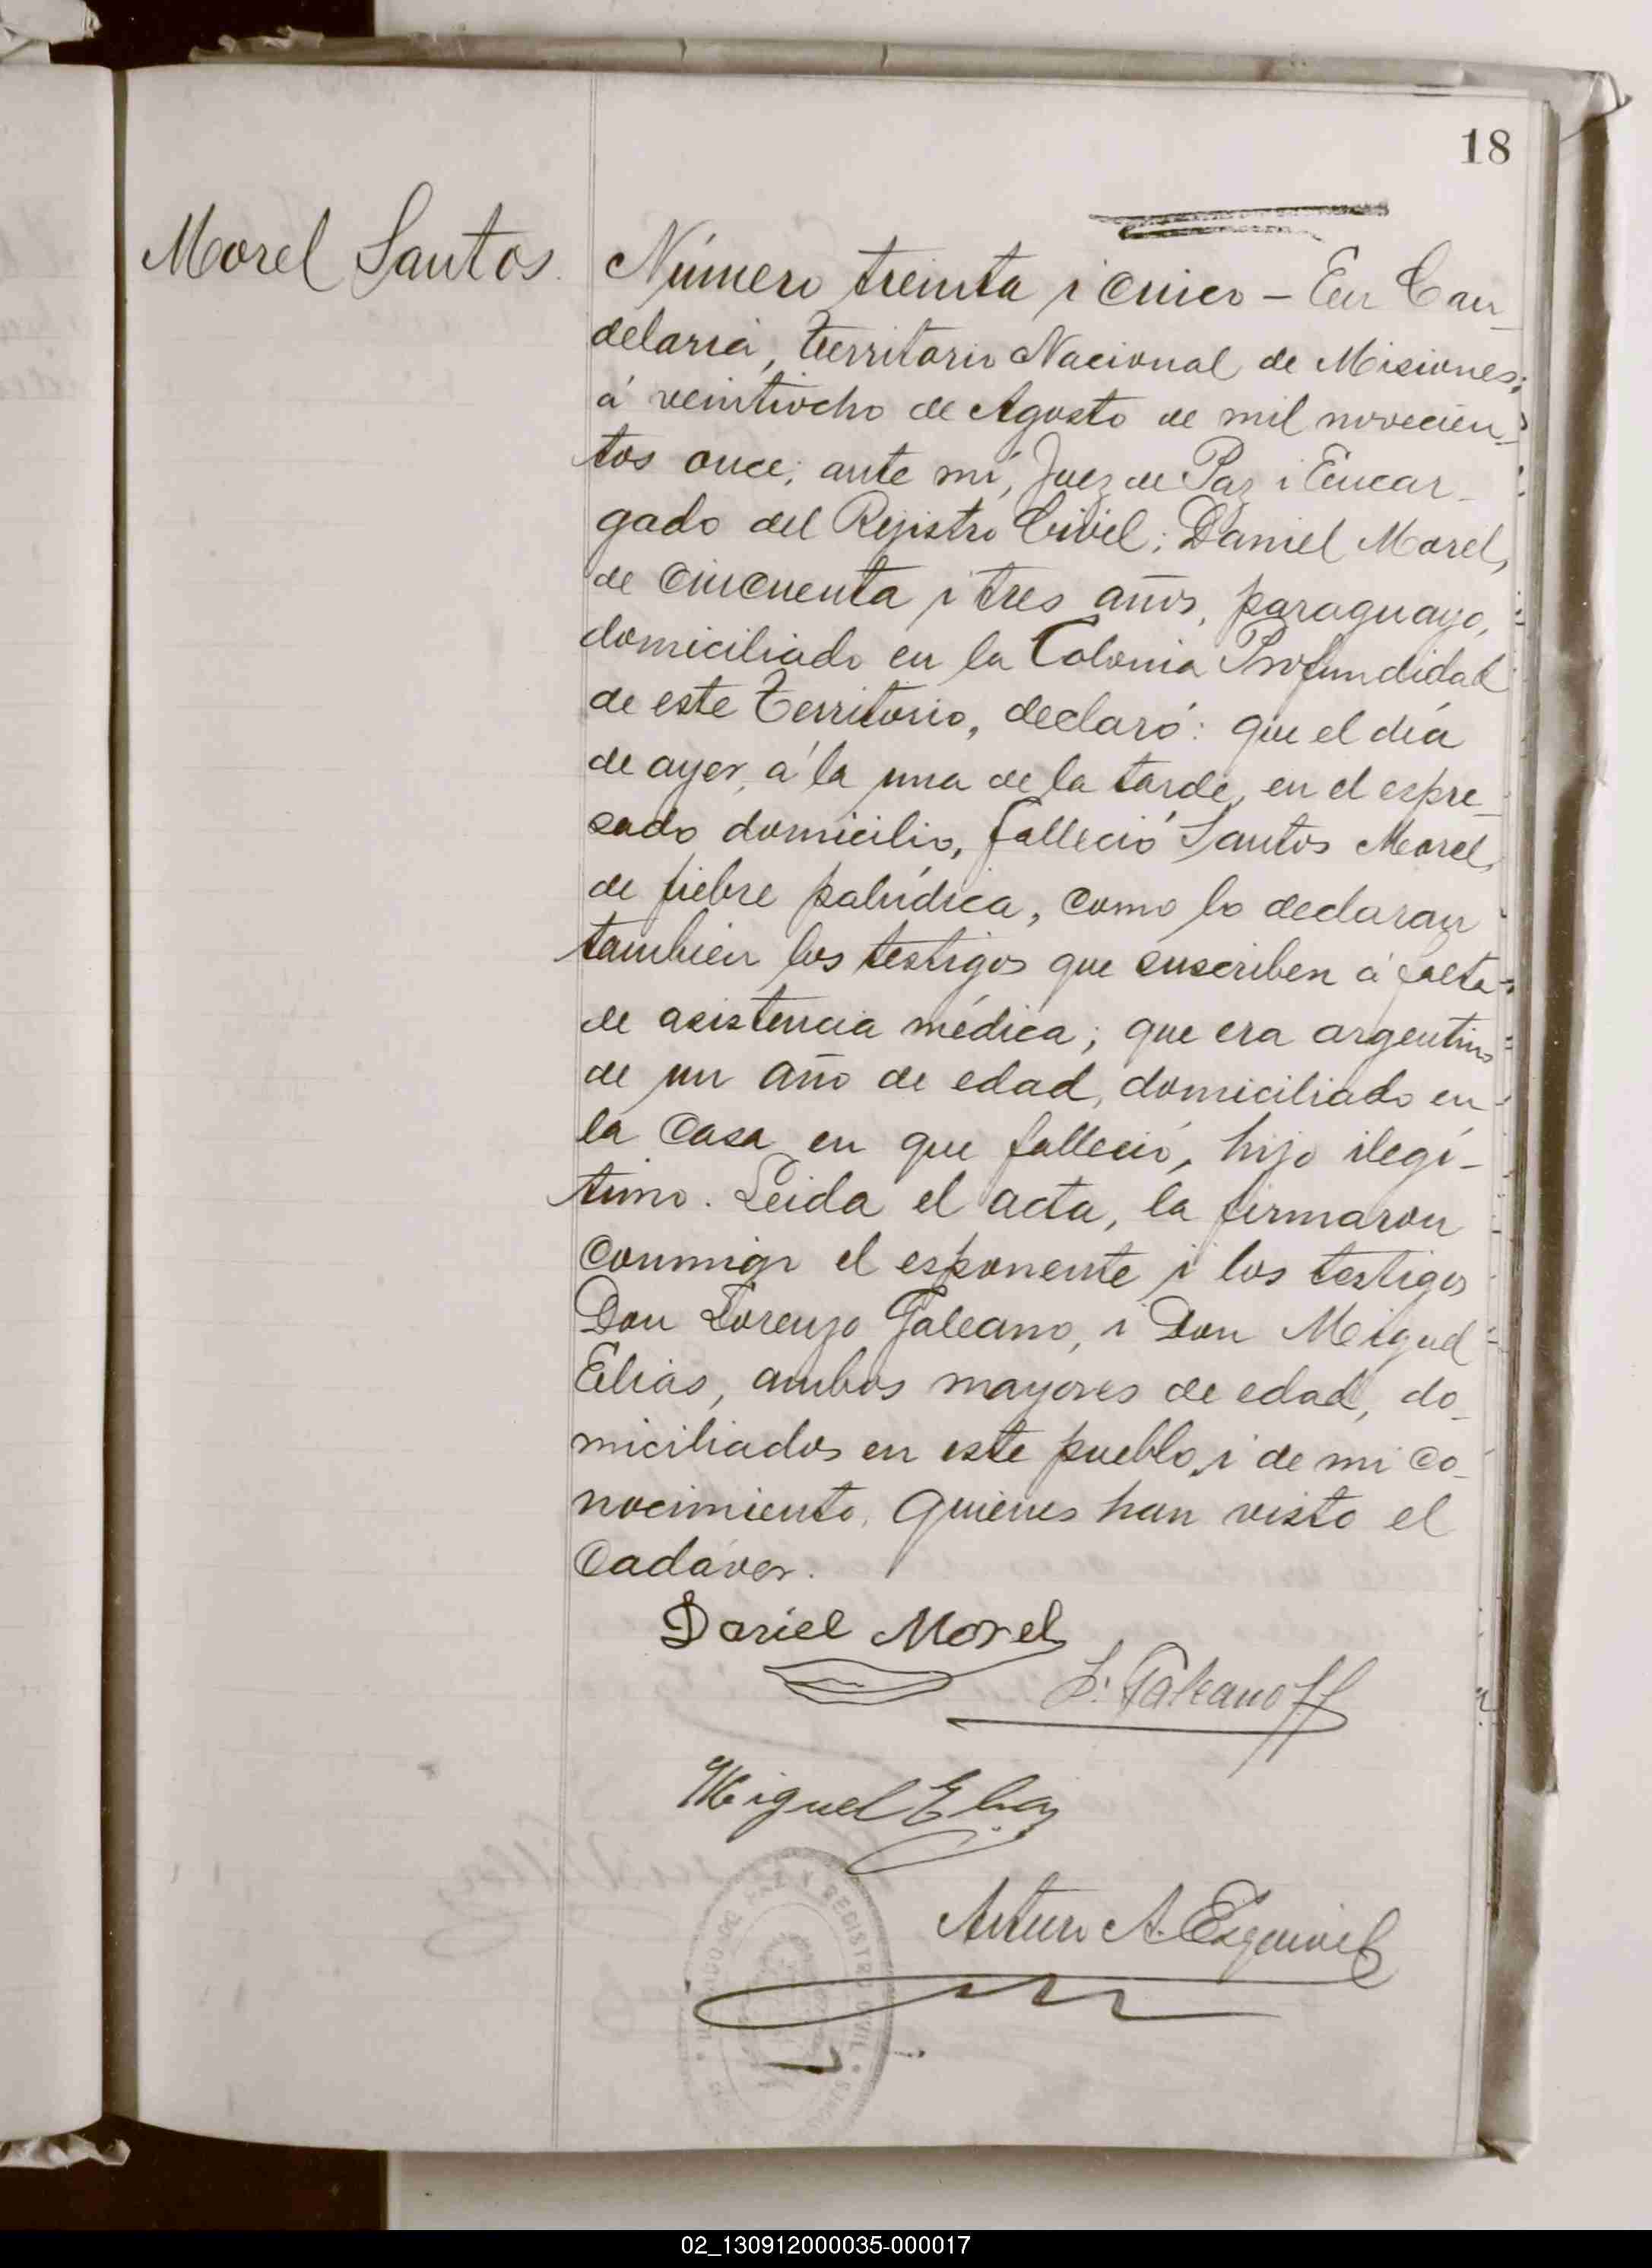 18
Morel Santos.
Número treinta i cinco – En Can-
delaria, territorio Nacional de Misiones;
á veintiocho de Agosto de mil novecien-
tos once; ante mí, Juez de Paz i Encar-
gado del Rejistro Civil; Daniel Morel,
de cincuenta i tres años, paraguayo,
domiciliado en la Colonia Profundidad
de este territorio, declaró: que el día
de ayer, á la una de la tarde, en el espre-
sado domicilio, falleció Santos Morel,
de fiebre palúdica, como lo declaran
tambien los testigos que suscriben á falta
de asistencia médica; que era argentino
de un año de edad, domiciliado en
la casa en que falleció, hijo ilegí-
timo. Leida el acta, la firmaron
conmigo el esponente i los testigos
Don Lorenzo Galeano, i Don Miguel
Elias, ambos mayores de edad, do-
miciliados en este pueblo, i de mi co-
nocimiento, quienes han visto el
cadáver.
Daniel Morel
L. Galeano
Miguel Elias
Arturo A. Esquivel
JUZGADO DE PAZ Y REGISTRO CIVIL
02_130912000035-000017